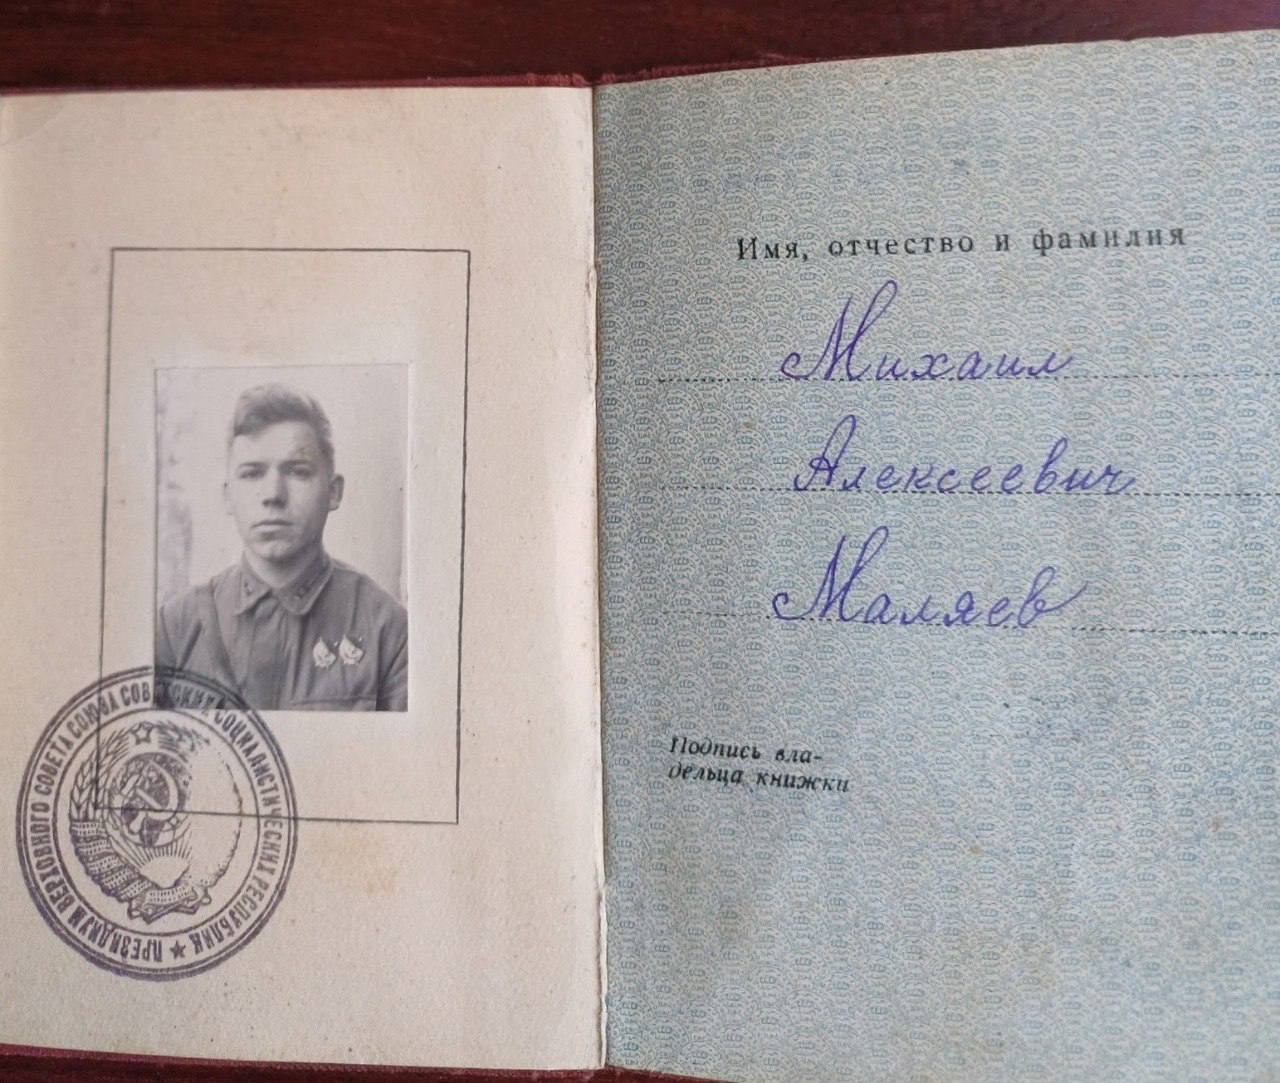 ПРЕЗИДИУМ ВЕРХОВНОГО СОВЕТА СОЮЗА СОВЕТСКИХ СОЦИАЛИСТИЧЕСКИХ РЕСПУБЛИК
Имя, отчество и фамилия
Михаил
Алексеевич
Маляев
Подпись вла-
дельца книжки